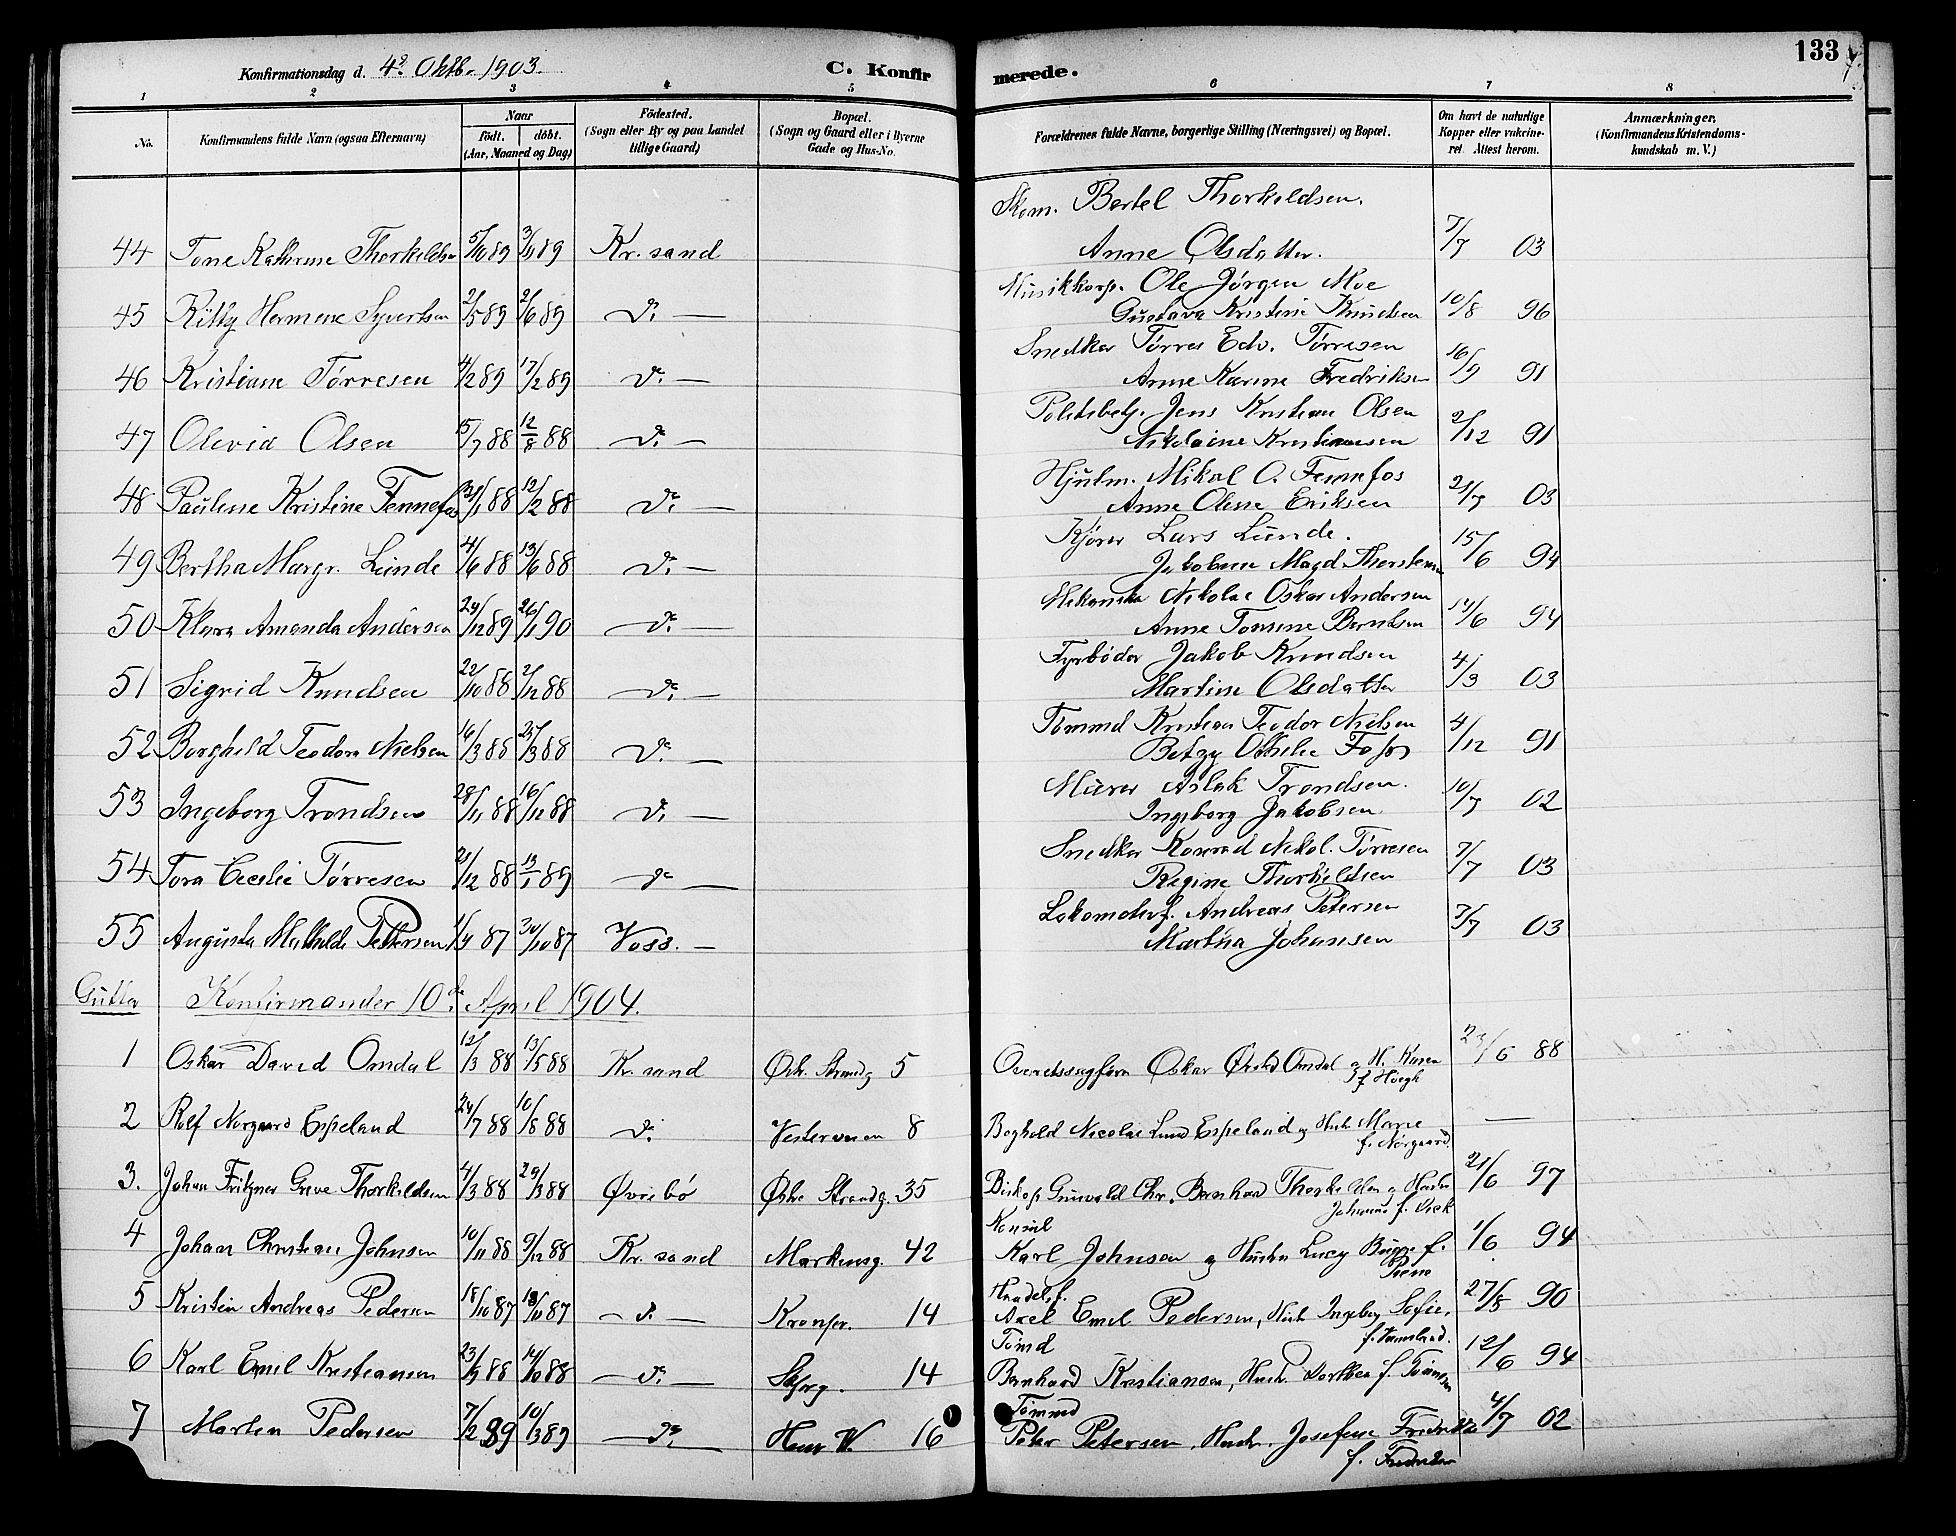 133
Konfirmationsdag d. 4de Oktb. 1903. C. Konfirmerede.
1 2 3 4 5 6 7 8
No. Konfirmandens fulde Navn (ogsaa Efternavn) Naar födt. döbt. (Aar, Maaned og Dag) Födested. (Sogn eller By og paa Landet tillige Gaard) Bopæl. (Sogn og Gaard eller i Byerne Gade og Hus-No. Forældrenes fulde Navne, borgerlige Stilling (Næringsvei) og Bopæl. Om havt de naturlige Kopper eller vakcineret. Attest herom. Anmærkninger. (Konfirmandens Kristendomskundskab m. V.)
Skom. Bertel Thorkildsen.
44 Tone Kathrine Thorkildsen 5/10 89 3/11 89 Kr. sand Anne Olsdatter. 7/7 03
Musikkorp. Ole Jörgen Moe
45 Kitty Hermene Syvertsen 2/5 89 2/6 89 Do — Gustava Kristine Knudsen 10/8 96
Snedker Tórres Edv. Tórresen
46 Kristiane Tórresen 4/2 89 17/2 89 Do — Anne Karine Fredriksen 16/9 91
Politibetj. Jens Kristian Olsen
47 Olevia Olsen 15/7 88 12/8 88 Do — Nikolaine Kristiansen 2/12 91
Hjulm. Mikal O. Fennefos
48 Pauline Kristine Fennefos 21/1 88 12/2 88 Do — Anne Oline Eriksen 21/7 03
Kjörer Lars Lunde.
49 Bertha Margr. Lunde 4/6 88 13/6 88 Do — Jakobine Magd. Thorstensen 15/6 94
Mekanika Nikolai Oskar Andersen
50 Klara Amanda Andersen 24/12 89 26/1 90 Do — Anne Tomine Berntsen 14/6 94
Fyrbóder Jakob Knudsen
51 Sigrid Knudsen 22/10 88 2/12 88 Do — Martine Olsdatter 4/3 03
Tömmd Kristian Teodor Nielsen
52 Borghild Teodora Nielsen 16/3 88 25/3 88 Do — Betzy Othilie 4/12 91
Murer Aslak Trondsen.
53 Ingeborg Trondsen 28/11 88 16/12 88 Do — Ingeborg Jakobsen 10/7 02
Snedker Konrad Nikol. Tórresen
54 Tora Cecelie Tórresen 21/12 88 13/1 89 Do — Regine Thorkildsen 7/7 03
Lokomotivf. Andreas Petersen
55 Augusta Mathilde Pettersen 1/9 87 30/10 87 Voss. — Martha Johansen 7/7 03
Gutter Konfirmander 10de April 1904.
1 Oskar David Omdal 12/3 88 13/5 88 Kr. sand Östr. Strandg 5 Overretssagförer Oskar Omdal og H. Karen f. Høegh 23/6 88
2 Rolf Norgaard Espeland 24/7 88 10/8 88 Do Vesterveien 8 Boghold Nicolai Lund Espeland og Hust. Marie f. Nörgaard —
3. Johan Fritzner Greve Thorkildsen 4/3 88 29/3 88 Øvrebö Østre Strandg. 35 Biskop Gunvald Chr. Bernhard Thorkildsen og Hustru f. 21/6 97
Konsul
4 Johan Christian Johnsen 10/11 88 9/12 88 Kr. sand Markensg. 42 Karl Johnsen og Hustru Lucy f. 1/6 94
Handelsf.
5 Kristin Andreas Pedersen 18/10 87 10 87 — Do — Kronpr. 14 Axel Emil Pedersen, Hust. Ingeborg Sofie, f. 27/5 90
Tömd
6 Karl Emil Kristiansen 23/9 88 14/10 88 — Do — Skjerg. 14 Bernhard Kristiansen, Hust. Dorthea f. 12/6 94
Tömmd
7 Martin Pedersen 7/2 89 10/3 89 — Do — Henr W 16 Peter Petersen, Hustr. Josefine Fredrikke 4/7 02